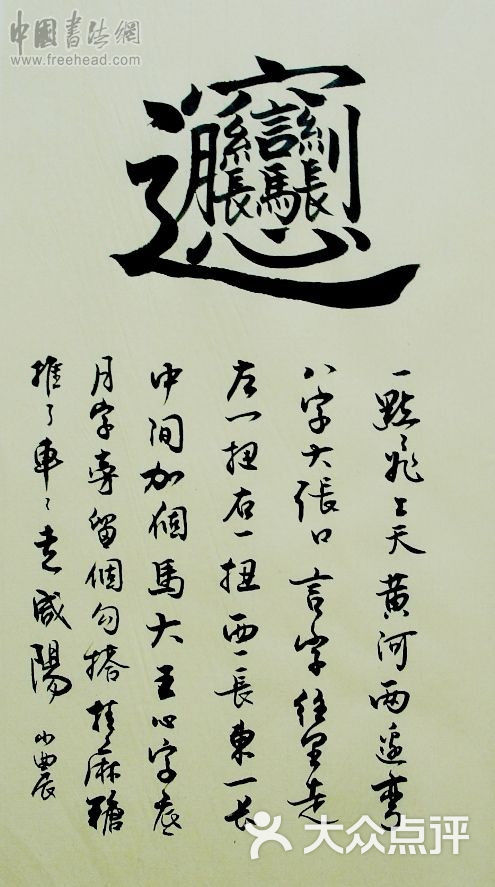 中國書法網
www.freehead.com
𰻞
一點飛上天黄河两邊彎
八字大張口言字往里走
左一扭右一扭西一長東一长
中间加個馬大王心字底
月字旁留個勾搭挂麻糖
推了車〻走咸陽 小農
大众点评